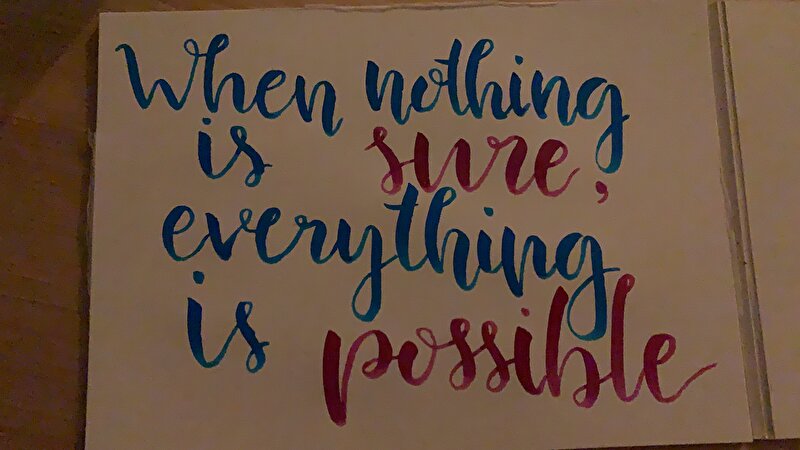 When nothing
is sure,
everything
is possible